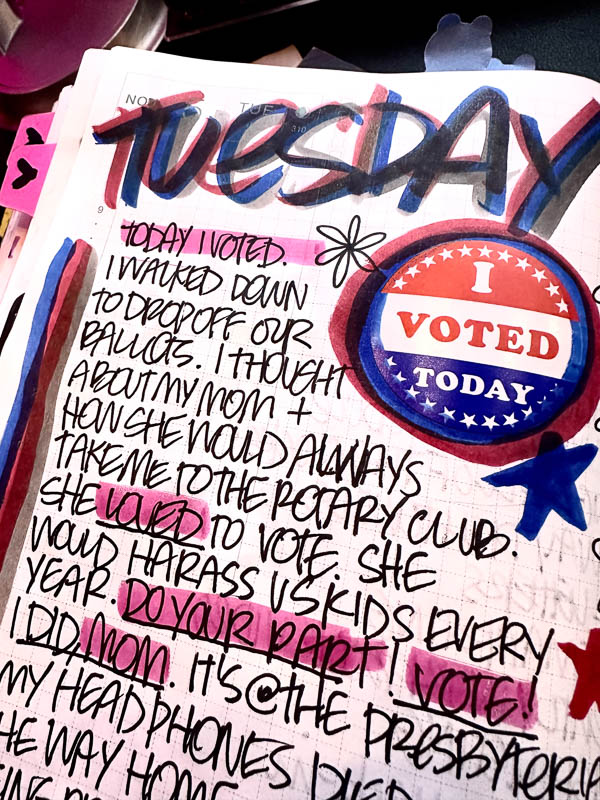 TUE
310
TUESDAY
9
TODAY I VOTED.
I WALKED DOWN
TO DROP OFF OUR
BALLOTS. I THOUGHT
ABOUT MY MOM +
HOW SHE WOULD ALWAYS
TAKE ME TO THE ROTARY CLUB.
SHE LOVED TO VOTE. SHE
WOULD HARASS US KIDS EVERY
YEAR. DO YOUR PART! VOTE!
I DID, MOM. IT'S @ THE
MY HEADPHONES DIED
WAY HOME
I
VOTED
TODAY